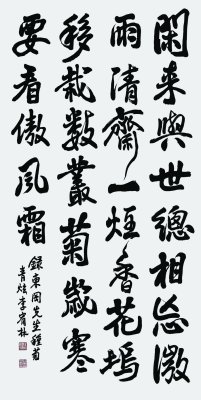 閑来與世總相忘微
雨清齋一炷香花塢
移栽數叢菊歲寒
要看傲風霜
錄東岡先生種菊
李林